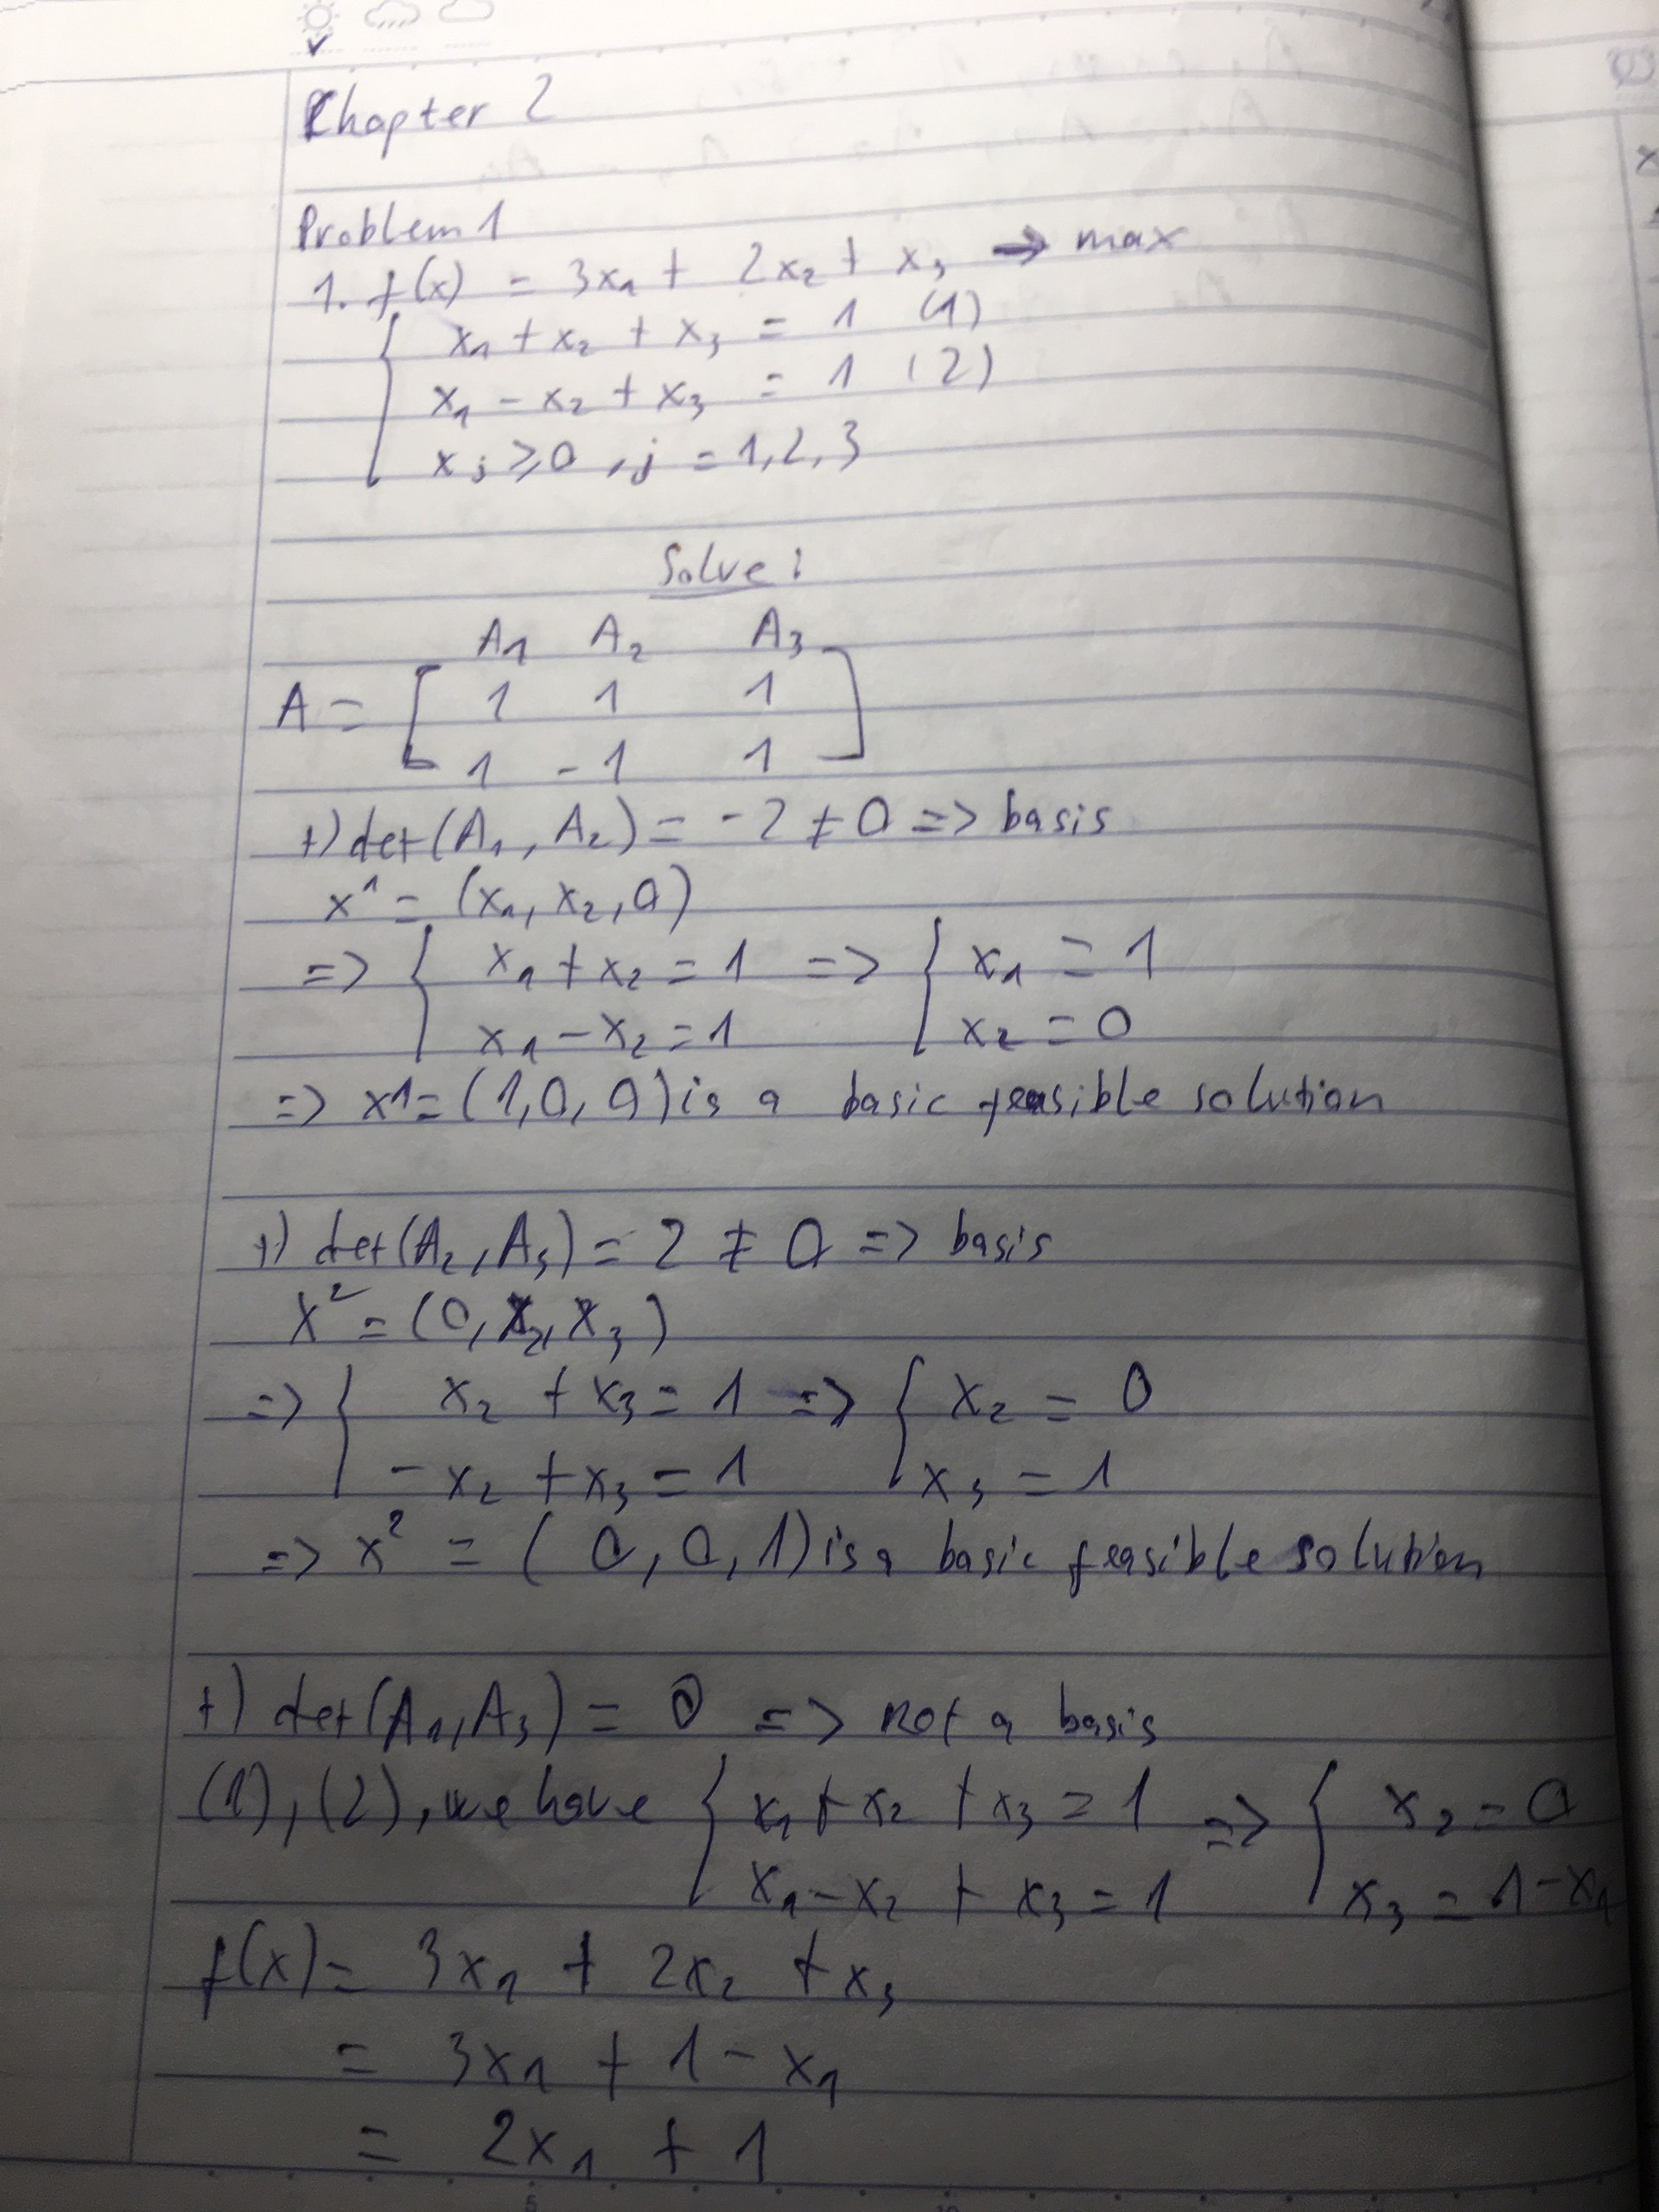 Chapter 2
Problem 1
1. f(x) = 3x₁ + 2x₂ + x₃ → max
{ x₁ + x₂ + x₃ = 1 (1)
x₁ - x₂ + x₃ = 1 (2)
xⱼ ≥ 0, j = 1,2,3
Solve:
A₁ A₂ A₃
A = [ 1 1 1
1 -1 1 ]
+) det(A₁, A₂) = -2 ≠ 0 => basis
x¹ = (x₁, x₂, 0)
=> { x₁ + x₂ = 1 => { x₁ = 1
x₁ - x₂ = 1 x₂ = 0
=> x1 = (1, 0, 0) is a basic feasible solution
+) det(A₂, A₃) = 2 ≠ 0 => basis
x² = (0, x₂, x₃)
=> { x₂ + x₃ = 1 => { x₂ = 0
-x₂ + x₃ = 1 x₃ = 1
=> x² = (0, 0, 1) is a basic feasible solution
+) det(A₁, A₃) = 0 => Not a basis
(1), (2), we have { x₁ + x₂ + x₃ = 1 => { x₂ = 0
x₁ - x₂ + x₃ = 1 x₃ = 1 - x₁
f(x) = 3x₁ + 2x₂ + x₃
= 3x₁ + 1 - x₁
= 2x₁ + 1
5 10